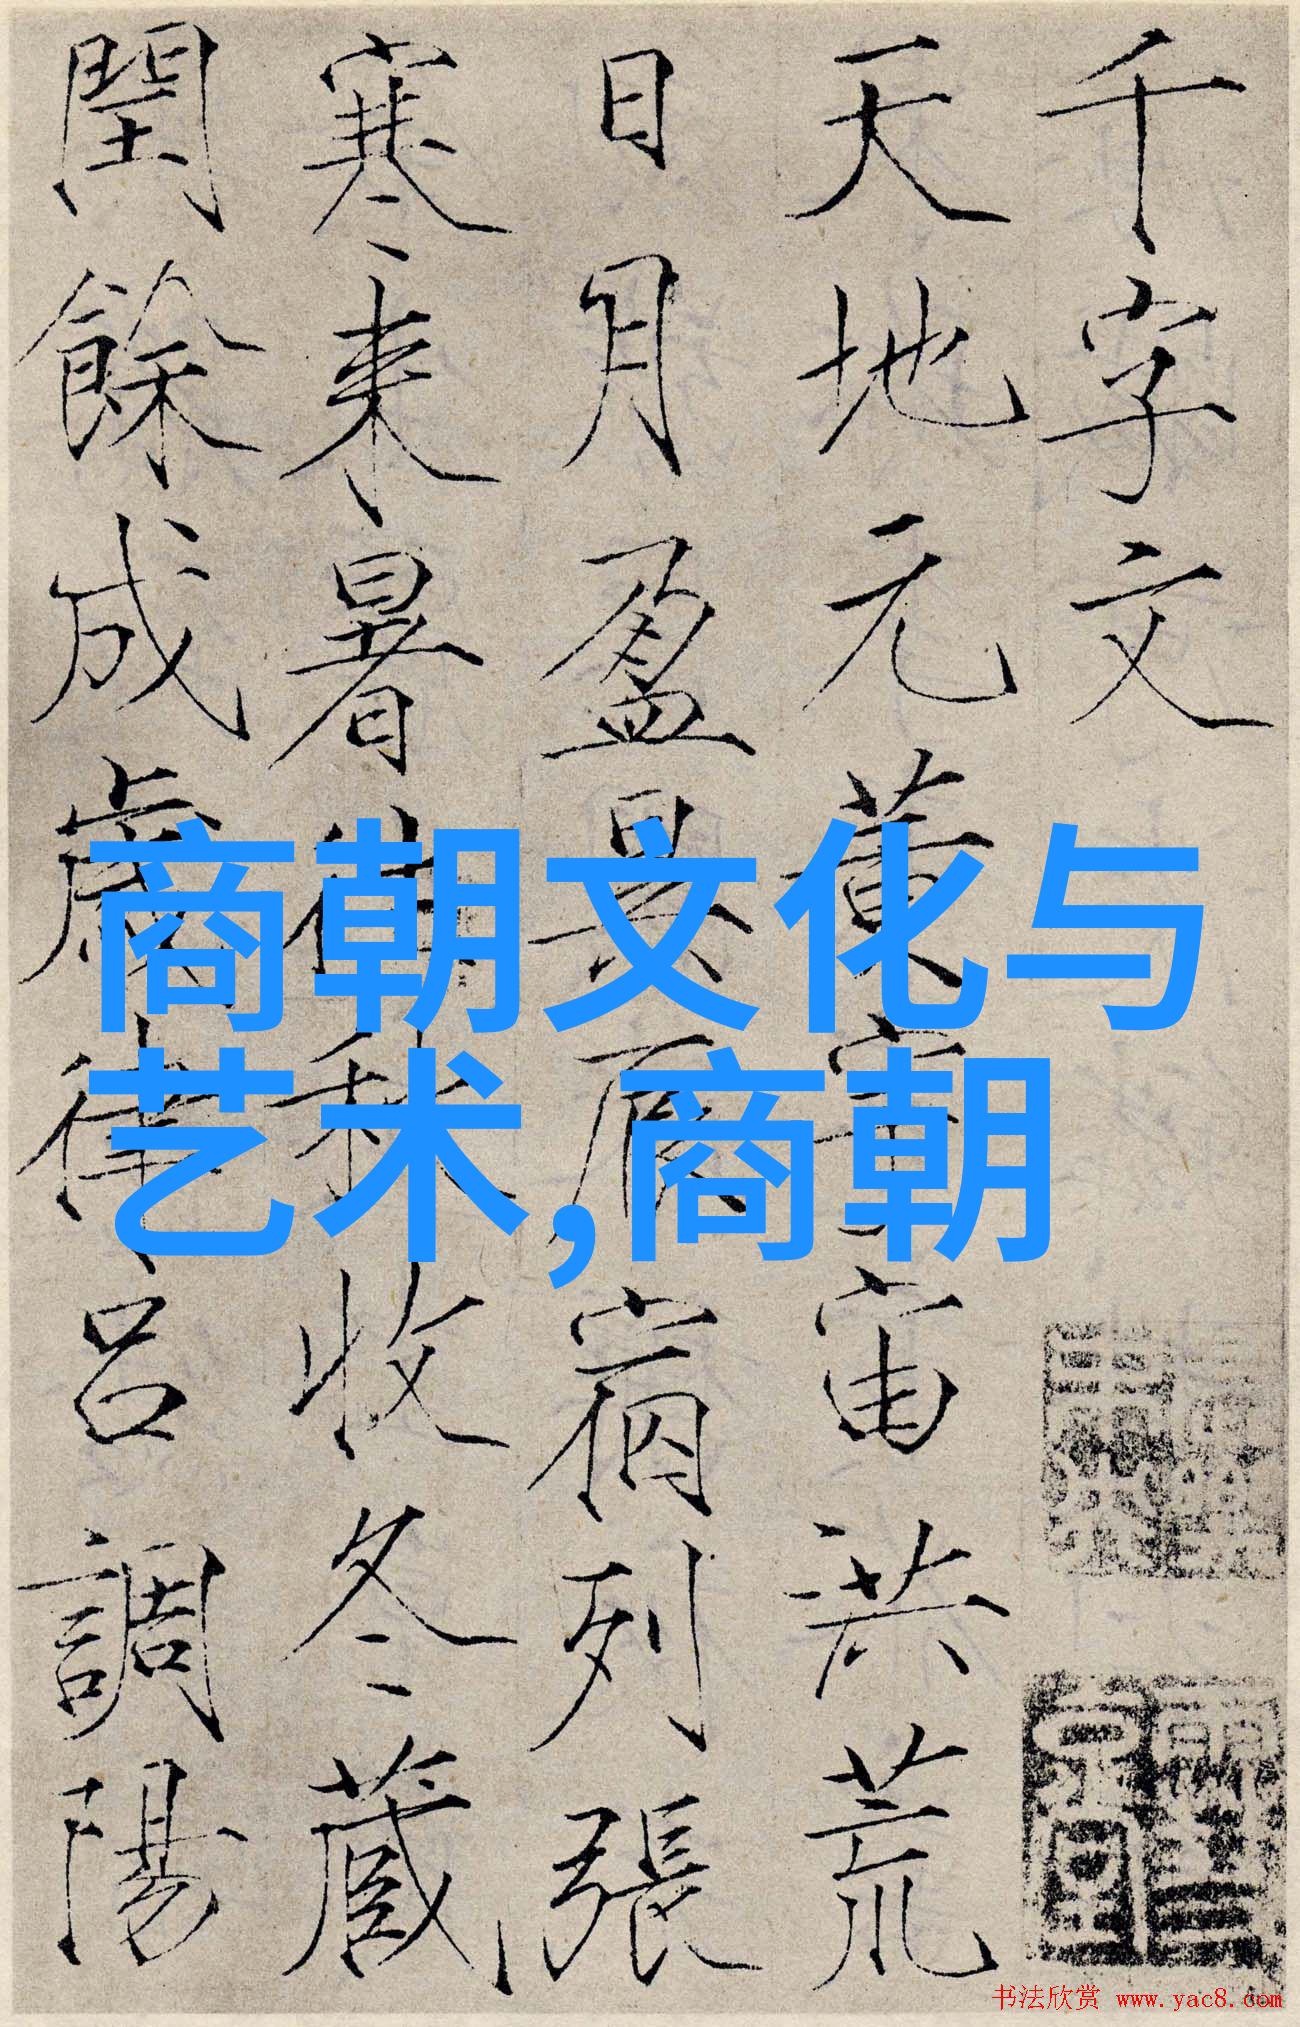 千字文
天地元黄宇宙洪荒
日月盈昃辰宿列張
寒来暑往秋收冬蔵
閏餘成歲律吕調陽
商朝文化与
艺术,商朝
书法欣赏 www.yac8.com